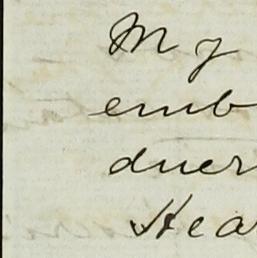 My
emb
duer
Hea